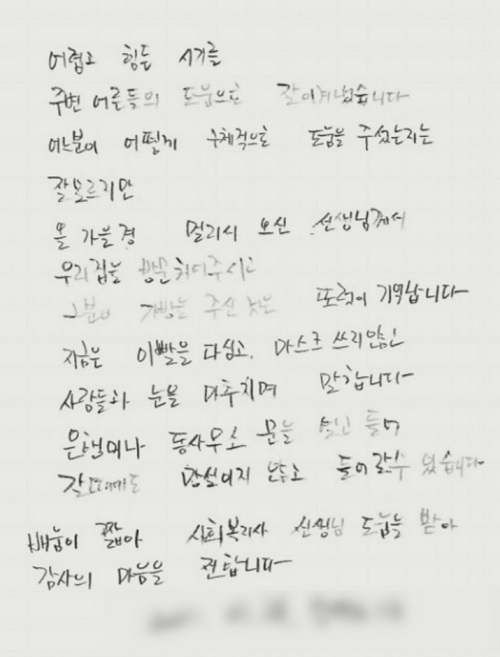 어렵고 힘든 시기를
주변 어른들의 도움으로 잘이겨냈습니다
어느분이 어떻게 구체적으로 도움을 주셨는지는
잘모르지만
올 가을경 멀리서 오신 선생님께서
우리집을 방문하여주시고
그분이 가방을 주신 것은 또렷이 기억합니다
지금은 이빨을 다심고, 마스크 쓰지않은
사람들과 눈을 마추치며 말합니다
은행이나 동사무소 문을 열고 들어
갈때에도 망설이지 않고 들어갈수 있습니다
배움이 짧아 사회복지사 선생님 도움을 받아
감사의 마음을 전합니다